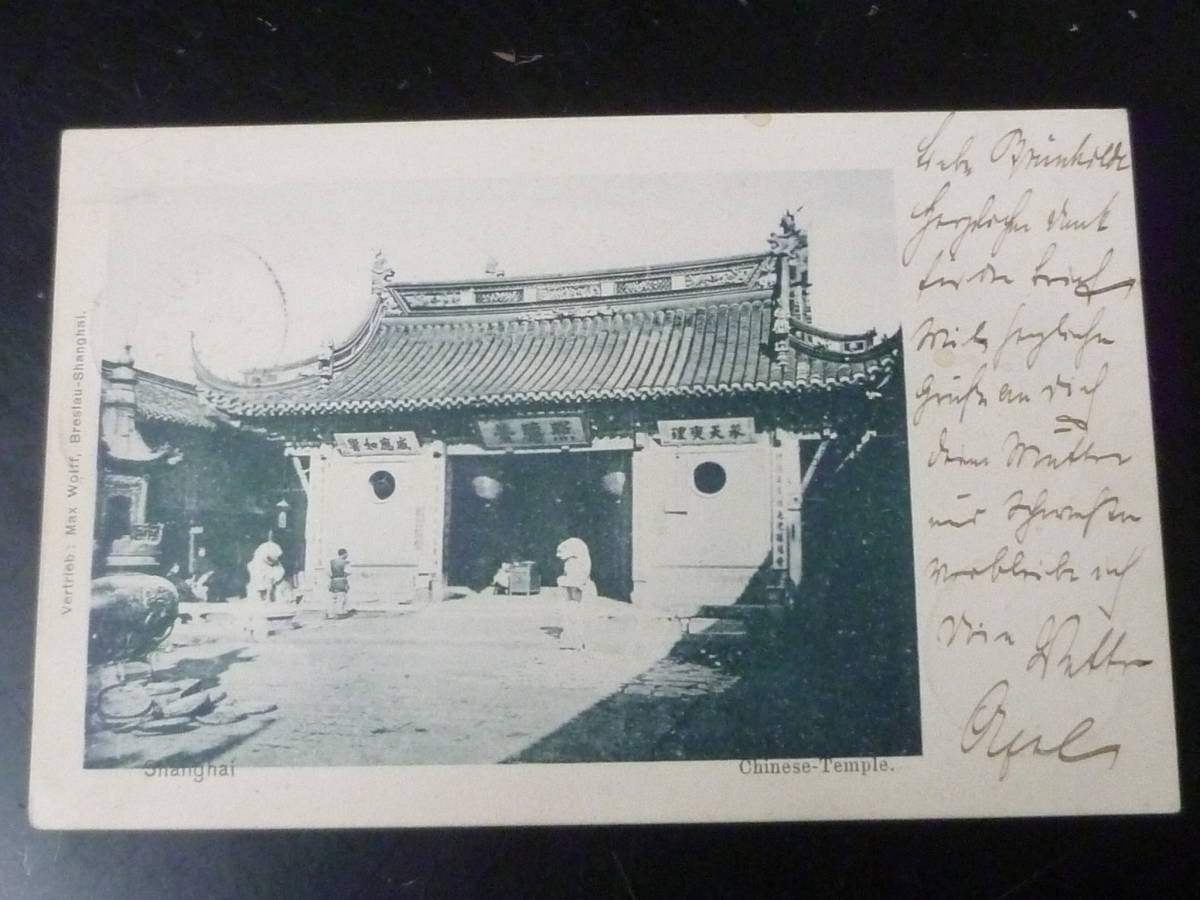 Vertrieb: Max Wolff, Breslau-Shanghai.
Shanghai
Chinese-Temple.
Liebe Brünhilde
Herzlichen Dank
für den Brief
Mit herzlichen
Grüßen an Dich
deine Mutter
und Schwester
verbleibe ich
Dein Vetter
Axel